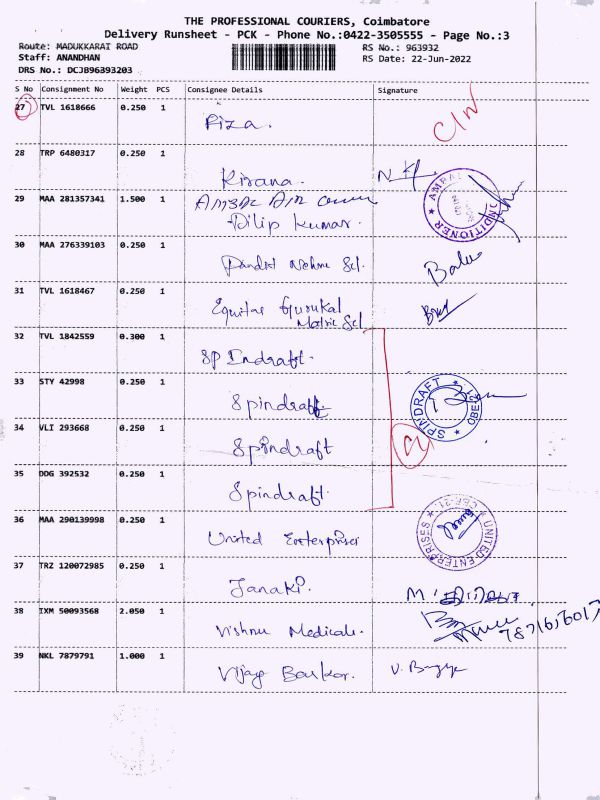 THE PROFESSIONAL COURIERS, Coimbatore
Delivery Runsheet - PCK - Phone No.:0422-3505555 - Page No.:3
Route: MADUKKARAI ROAD RS No.: 963932
Staff: ANANDHAN RS Date: 22-Jun-2022
DRS No.: DCJB96393203
S No Consignment No Weight PCS Consignee Details Signature
27 TVL 1618666 0.250 1 Riza.
28 TRP 6480317 0.250 1 Kirana.
29 MAA 281357341 1.500 1
Dilip Kumar.
30 MAA 276339103 0.250 1 Nehru Scl. Babu
31 TVL 1618467 0.250 1 Equitas Gurukal
Matric Scl
32 TVL 1842559 0.300 1 SP Indraft.
33 STY 42998 0.250 1 Spindraft
SPINDRAFT ★ CBE-21 ★
34 VLI 293668 0.250 1 Spindraft
35 DDG 392532 0.250 1 Spindraft.
36 MAA 290139998 0.250 1 United Enterprises
UNITED ENTERPRISES ★ CBE-21. ★
37 TRZ 120072985 0.250 1 Janaki.
38 IXM 50093568 2.050 1 Vishnu Medicals.
39 NKL 7879791 1.000 1 Vijay